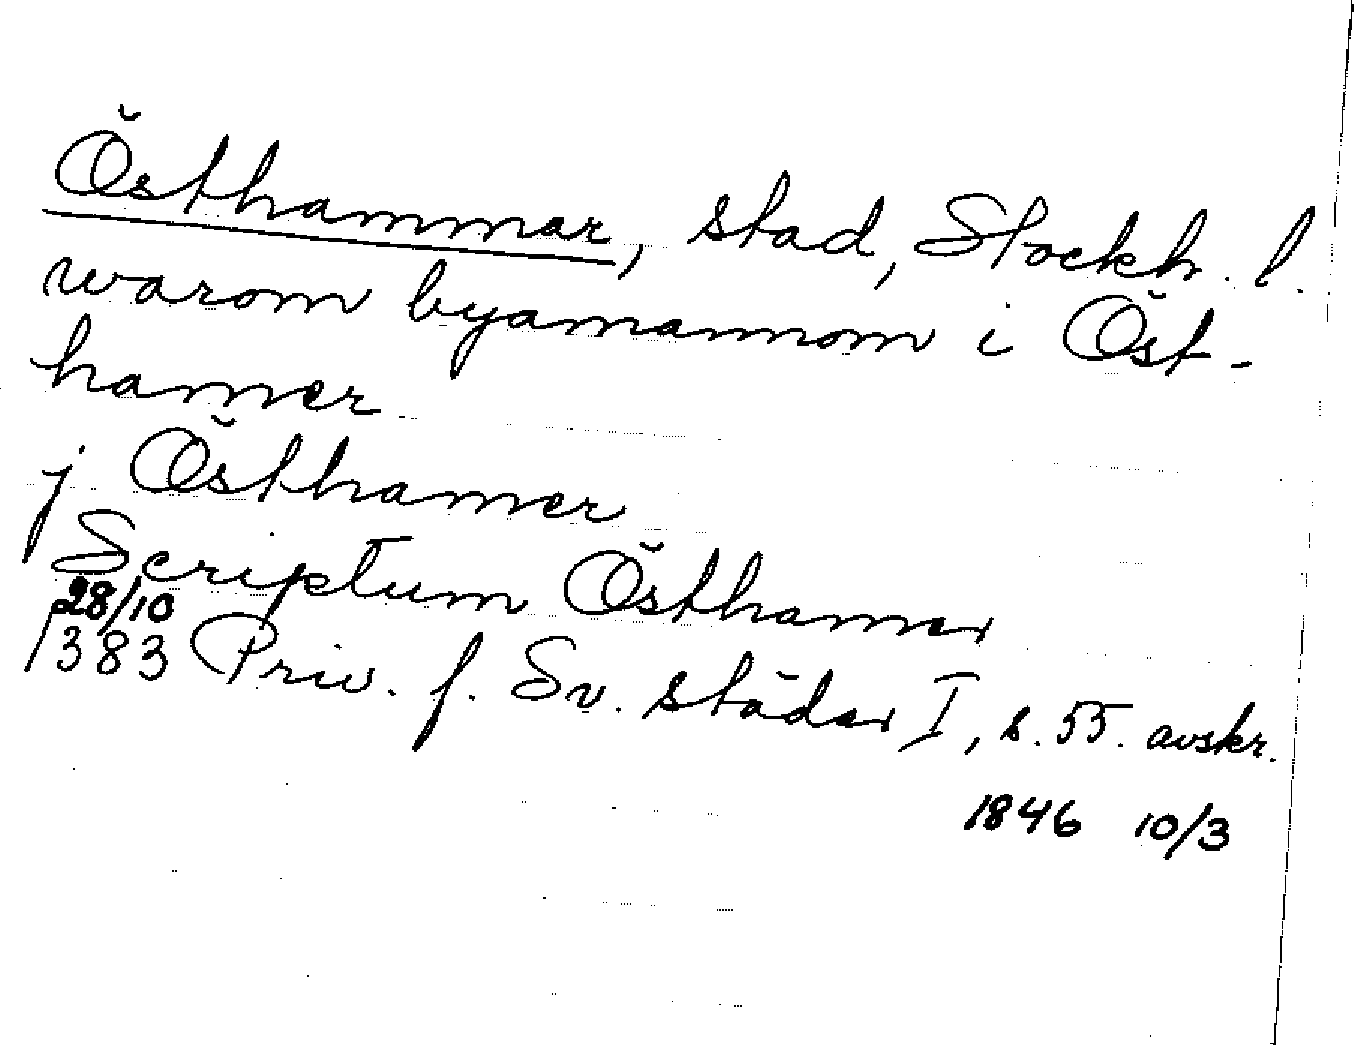 Östhammar, stad, Stockh. l.
warom byamannom i Öst-
hamer
j Östhamer
Scriptum Østhamer
28/10
1383 Priv. f. Sv. städer I, s. 55. avskr.
1846 10/3